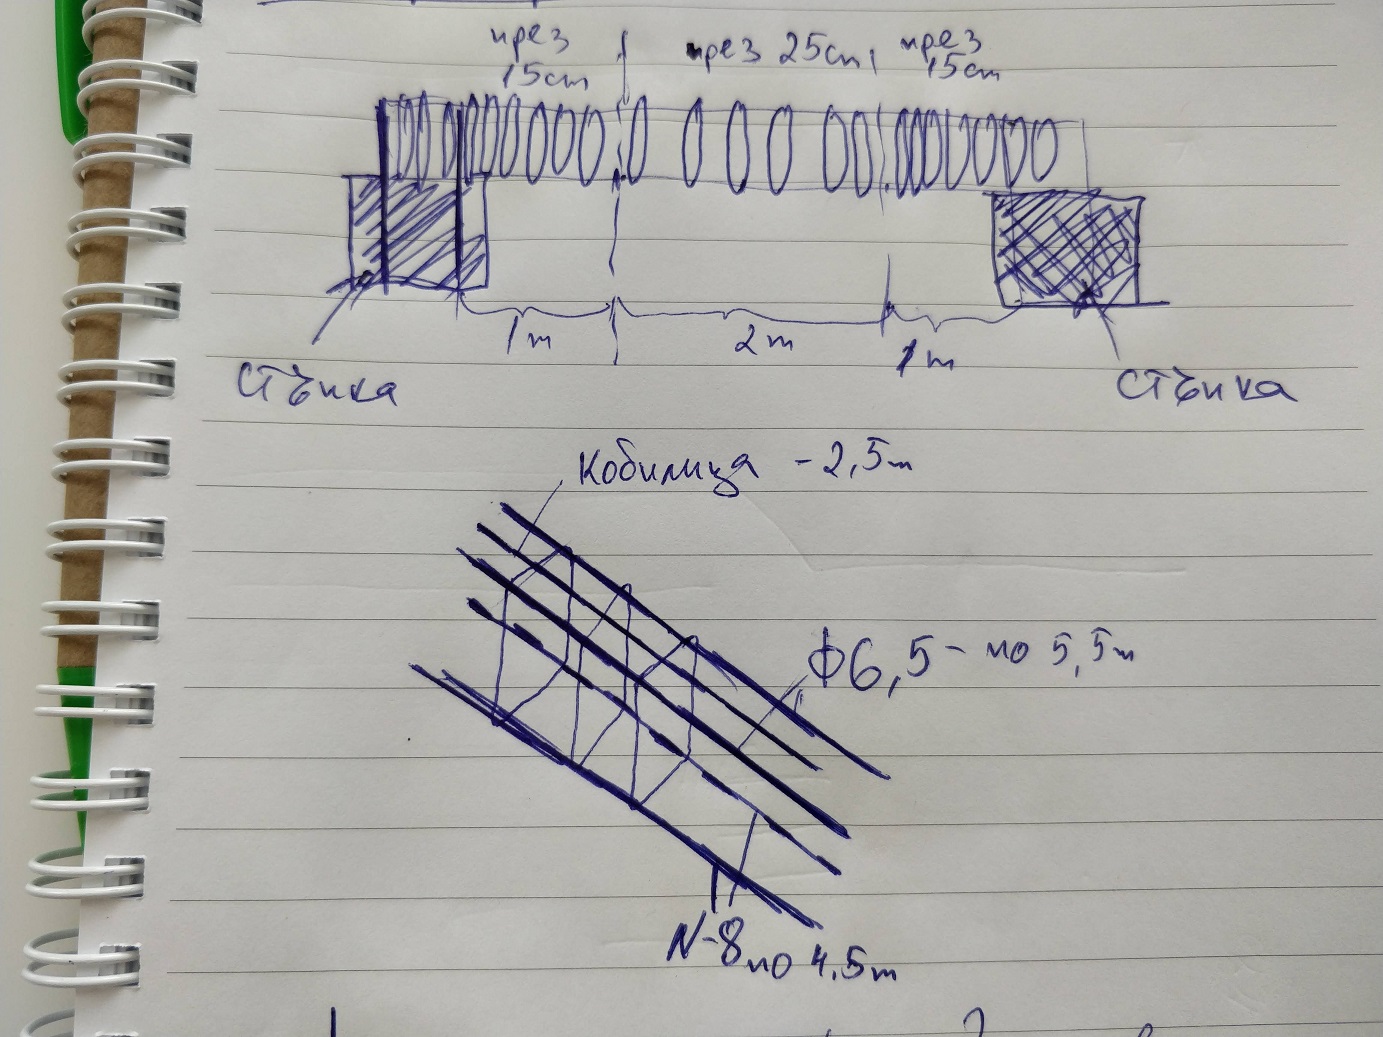 през
15cm
през 25cm
през
15cm
1m
2m
1m
стъпка
стъпка
кобилица - 2,5m
ф6,5 - по 5,5m
N-8 по 4,5m